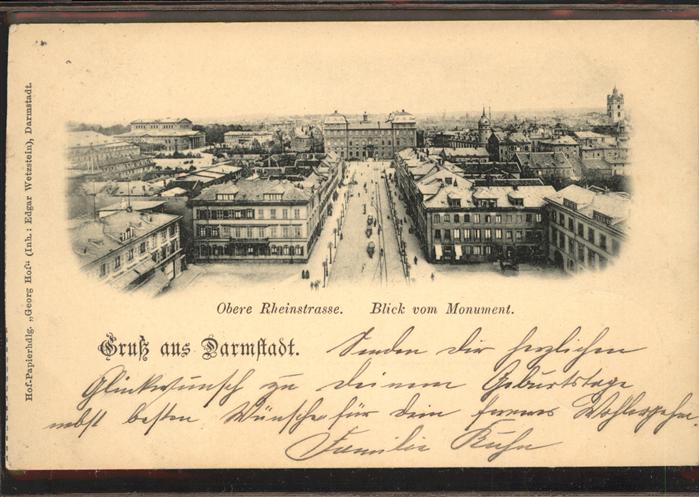 Hof-Papierhdlg. „Georg Hof“ (Inh.: Edgar Wetzstein), Darmstadt.
Obere Rheinstrasse. Blick vom Monument.
Gruß aus Darmstadt. Senden dir herzlichen
Glückwunsch zu deinem Geburtstage
nebst besten Wünsche für dein ferneres Wohlergehen.
Familie Kuhn